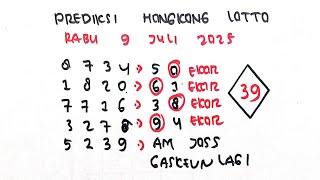 PREDIKSI HONGKONG LOTTO
RABU 9 JULI 2025
0 7 3 4 → 5 0 EKOR
1 8 2 0 → 6 1 EKOR
7 7 1 6 → 3 8 EKOR
3 2 7 8 → 9 4 EKOR
5 2 3 9 → AM JOSS
GASKEUN LAGI
39